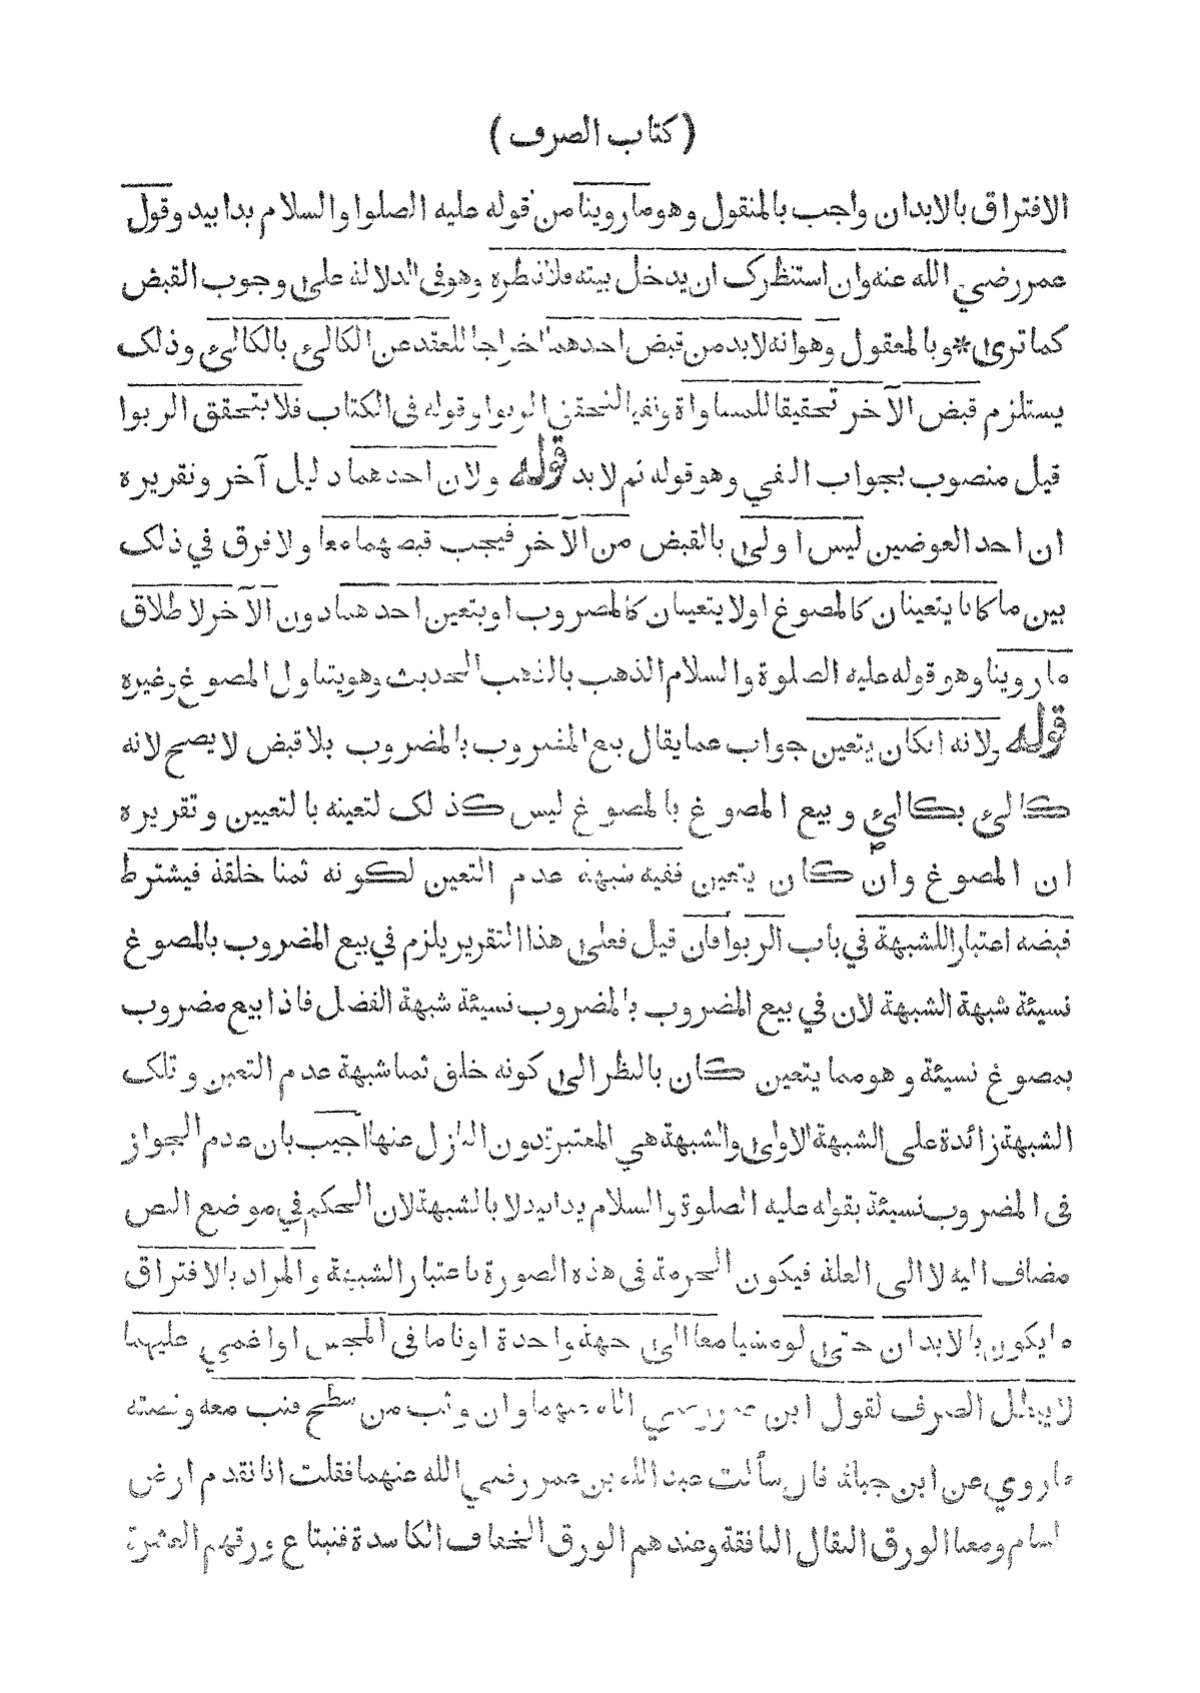 ( كتاب الصرف )
الافتراق بالابدان واجب بالمنقول وهو ما روينا من قوله عليه الصلوا والسلام يدا بيد وقول
عمر رضي الله عنه وان استنظرك ان يدخل بيته فلا تنظره وهو فى الدلالة على وجوب القبض
كما ترى * وبالمعقول وهوانه لابد من قبض احدهما اخراجا للعقد عن الكالئ بالكالئ وذلك
يستلزم قبض الآخر تحقيقا للمساواة ونفيا لتحقق الربوا وقوله فى الكتاب فلا يتحقق الربوا
قيل منصوب بجواب النفي وهو قوله ثم لابد قوله ولان احدهما دليل آخر وتقريره
ان احد العوضين ليس اولى بالقبض من الآخر فيجب قبضهما معا ولا فرق في ذلك
بين ما كانا يتعينان كالمصوغ اولا يتعينان كالمضروب او يتعين احدهما دون الآخر لاطلاق
ما روينا وهو قوله عليه الصلوة والسلام الذهب بالذهب الحديث وهو يتناول المصوغ وغيره
قوله ولانه انكان يتعين جواب عما يقال بيع المضروب بالمضروب بلا قبض لا يصح لانه
كالئ بكالئ وبيع المصوغ بالمصوغ ليس كذلك لتعينه بالتعيين وتقريره
ان المصوغ وان كان يتعين ففيه شبهة عدم التعين لكونه ثمنا خلقة فيشترط
قبضه اعتبارا للشبهة في باب الربوا فان قيل فعلى هذا التقرير يلزم في بيع المضروب بالمصوغ
نسيئة شبهة الشبهة لان في بيع المضروب بالمضروب نسيئة شبهة الفضل فاذا بيع مضروب
بمصوغ نسيئة وهو مما يتعين كان بالنظر الى كونه خلق ثمنا شبهة عدم التعين وتلك
الشبهة زائدة على الشبهة الاولى والشبهة هي المعتبرة دون النازل عنها اجيب بان عدم الجواز
فى المضروب نسيئة بقوله عليه الصلوة والسلام يدا بيد لا بالشبهة لان الحكم في موضع النص
مضاف اليه لا الى العلة فيكون الحرمة فى هذه الصورة باعتبار الشبهة والمراد بالافتراق
ما يكون بالابدان حتى لو مشيا معا الى جهة واحدة او ناما فى المجلس او اغمي عليهما
لا يبطل الصرف لقول ابن عمر رضي الله عنهما وان وثب من سطح فثب معه وقصته
ما روي عن ابن جبلة قال سألت عبد الله بن عمر رضي الله عنهما فقلت انا نقدم ارض
الشام ومعنا الورق الثقال النافقة وعندهم الورق الخفاف الكاسدة فنبتاع ورقهم العشرة